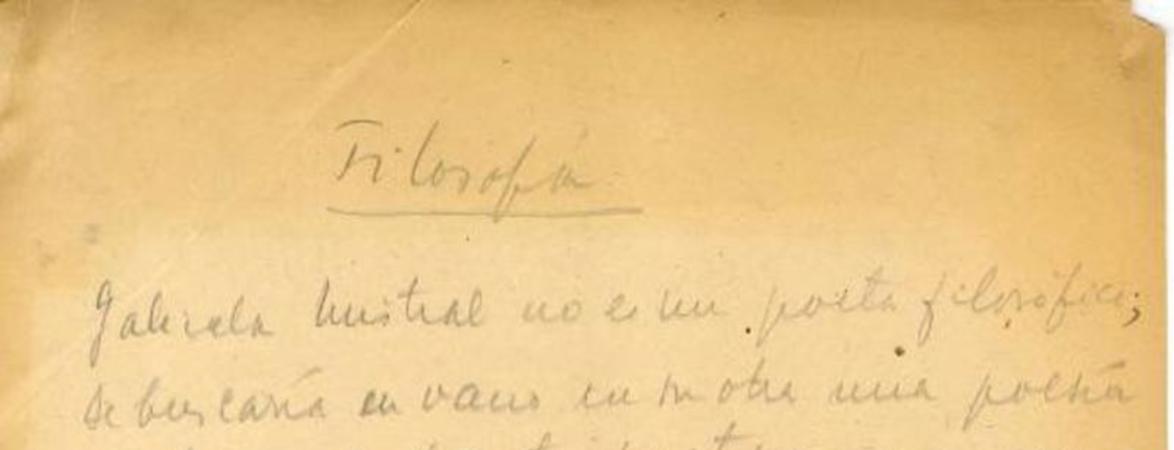 Filosofía
Gabriela Mistral no es un poeta filosófico;
se buscaría en vano en su obra una poesía